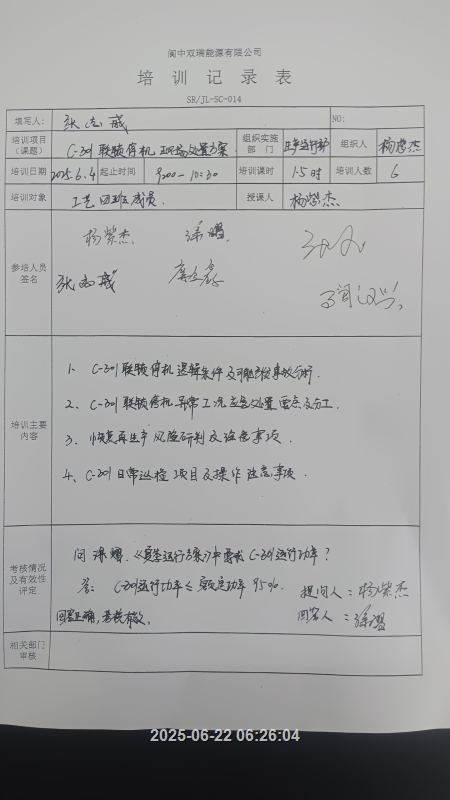 阆中双瑞能源有限公司
培训记录表
SR/JL-SC-014
填写人: 张志威 NO:
培训项目(课题) C-301联锁停机现场处置方案 组织实施部门 正常运行部 组织人 杨紫杰
培训日期 2025.6.4 起止时间 9:00-10:30 培训课时 1.5时 培训人数 6
培训对象 工艺四班成员. 授课人 杨紫杰
参培人员签名
杨紫杰
张志威
培训主要内容
1、C-301联锁停机逻辑条件及可能导致事故分析.
2、C-301联锁停机异常工况应急处置要点及分工.
3、恢复再生产风险研判及注意事项.
4、C-301日常巡检项目及操作注意事项.
考核情况及有效性评定
问 《夏季运行方案》中要求C-301运行功率?
答: C-301运行功率≤额定功率95%.
提问人:杨紫杰
回答正确,考核有效。 回答人:
相关部门审核
2025-06-22 06:26:04